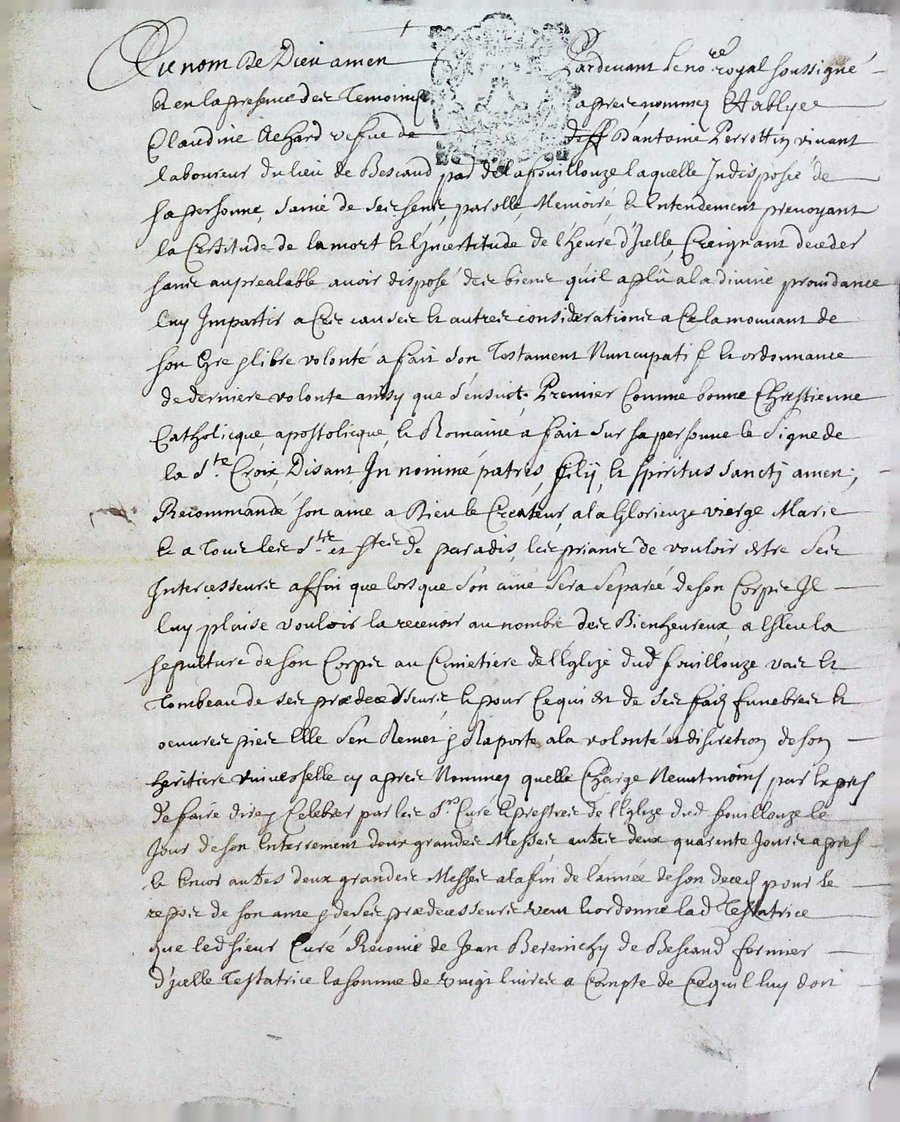 Au nom de Dieu amen Pardevant le no.re royal soussigné
Et en la presence des Temoings apres nommez Establye
Claudine vefue de deff.t d'antoine Perrottin vivant
laboureur du lieu de Bescaud par de la fouillouze laquelle Indisposée de
sa personne, saine de ses sens, parolle, Memoire et Entendement prevoyant
la Certitude de la mort et l'Incertitude de l'heure d'Icelle, Creignant deceder
sans au prealable avoir disposé des biens qu'il a plû a la divine providance
luy Impartir a Ces causes et autres considerations a Ce la mouvant de
son gre & libre volonté a fait son Testament Nuncupatif et ordonnance
de derniere volonte ainsy que s'ensuit. Premier Comme bonne Chrestienne
Catholicque apostolicque, et Romaine a fait sur sa personne le signe de
la S.te Croix, Disant In nomine patris filij, et spiritus sanctj amen;
Recommandé son ame a Dieu le Createur, a la Glorieuze vierge Marie
et a Tous les S.ts et S.tes de paradis, les priant de vouloir estre ses
Intercesseurs affin que lorsque son ame sera separée de son Corps Il
luy plaise vouloir la recevoir au nombre des Bienheureux, a Esleu la
sepulture de son Corps au Cimetiere de l'Eglize dud fouillouze vas et
Tombeau de ses prædecesseurs et pour Ce qui est de ses fraiz funebres et
oeuvres pies Elle s'en Remet & Raporte a la volonté et discretion de son
heritiere vniverselle cy apres Nommez quelle Charge Neantmoins par Expres
de faire dire & Celebrer par les S.rs Curé et prestres de l'Eglize dud fouillouze le
Jour de son Enterrement deux grandes Messes autres deux quarente Jours apres
et Encor autres deux grandes Messes a la fin de l'année de son deces pour le
repos de son ame & de ses prædecesseurs veut et ordonne lad Testatrice
que led sieur Curé Recoive de Jean de Bescaud fermier
d'Icelle Testatrice la somme de vingt livres a Compte de Ce quil luy doit